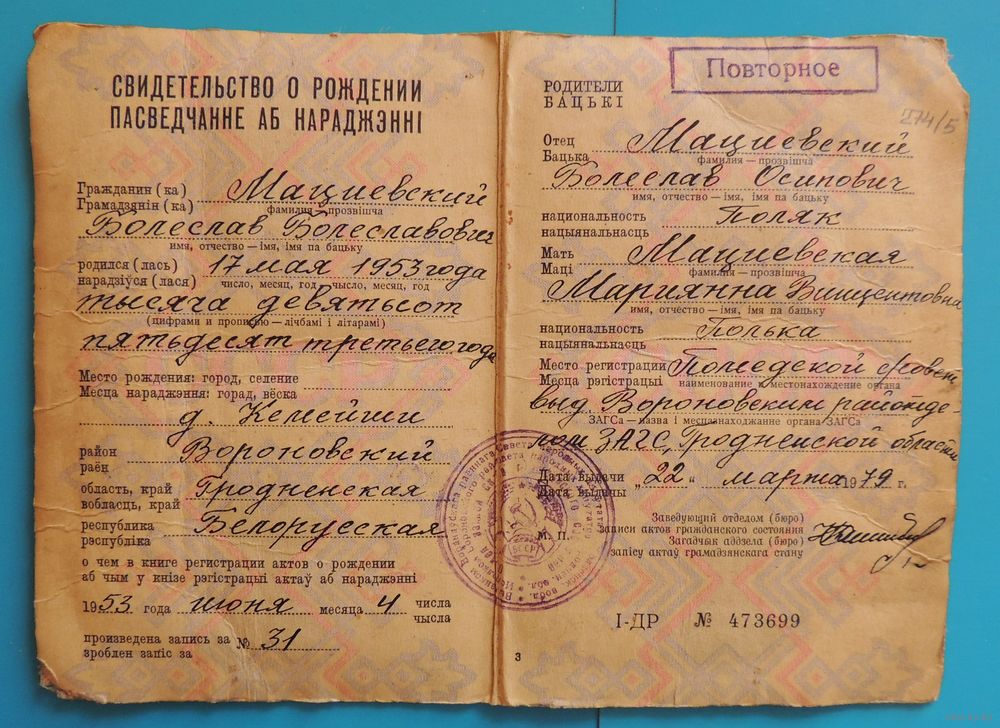 СВИДЕТЕЛЬСТВО О РОЖДЕНИИ
ПАСВЕДЧАННЕ АБ НАРАДЖЭННІ
Гражданин (ка) Мациевский
Грамадзянін (ка) фамилия — прозвішча
Болеслав Болеславович
имя, отчество — імя, імя па бацьку
родился (лась) 17 мая 1953 года
нарадзіўся (лася) число, месяц, год — чысло, месяц, год
тысяча девятьсот
(цифрами и прописью — лічбамі і літарамі)
пятьдесят третьего года
Место рождения: город, селение
Месца нараджэння: горад, вёска
д. Кемейши
район Вороновский
раён
область, край Гродненская
вобласць, край
республика Белорусская
рэспубліка
о чем в книге регистрации актов о рождении
аб чым у кнізе рэгістрацыі актаў аб нараджэнні
1953 года июня месяца 4 числа
чысла
произведена запись за № 31
зроблен запіс за
Повторное
274/5
РОДИТЕЛИ
БАЦЬКІ
Отец Мациевский
Бацька фамилия — прозвішча
Болеслав Осипович
имя, отчество — імя, імя па бацьку
национальность Поляк
нацыянальнасць
Мать Мациевская
Маці фамилия — прозвішча
Марианна Винцентовна
имя, отчество — імя, імя па бацьку
национальность Полька
нацыянальнасць
Место регистрации
Месца рэгістрацыі наименование и местонахождение органа
выд. Вороновским райотде-
ЗАГСа — назва і месцазнаходжанне органа ЗАГСа
лом ЗАГС, Гродненской области
Дата выдачи „22“ марта 1979 г.
Дата выдачы
М. П.
Заведующий отделом (бюро)
записи актов гражданского состояния
Загадчык аддзела (бюро)
запісу актаў грамадзянскага стану
І-ДР № 473699
3